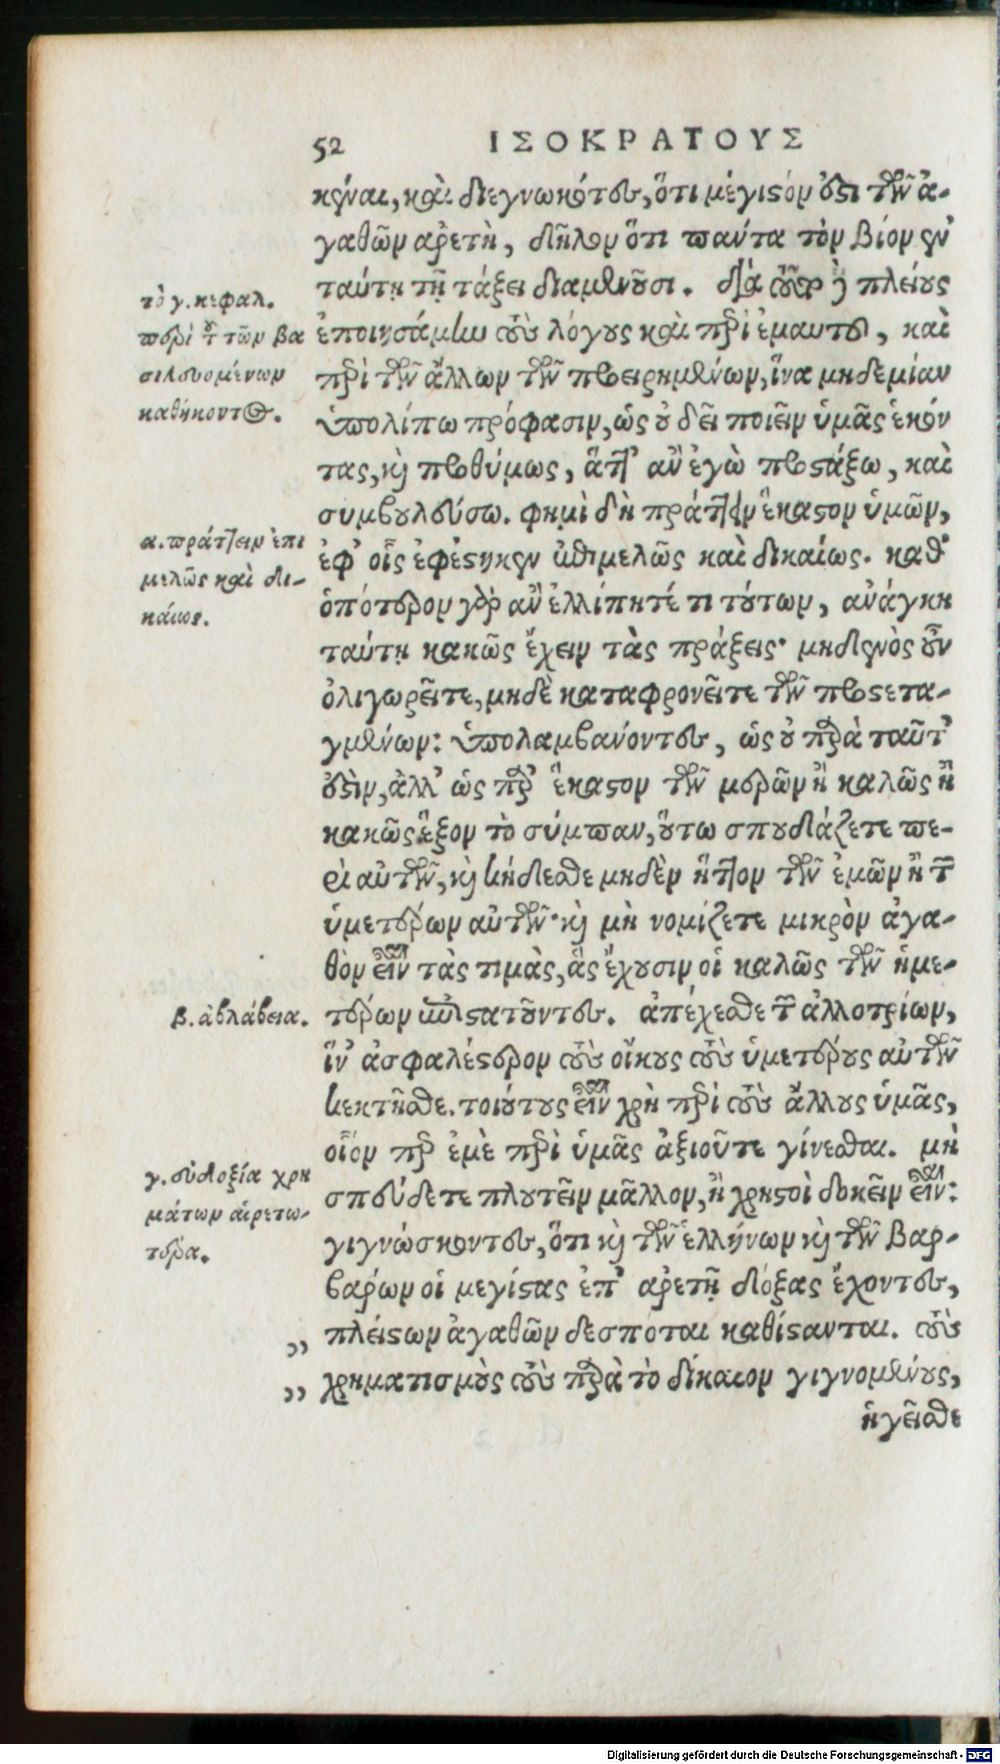 52 ΙΣΟΚΡΑΤΟΥΣ
κέναι, καὶ διεγνωκότες, ὅτι μέγιστόν ἐστι τῶν ἀ-
γαθῶν ἀρετὴ, δῆλον ὅτι πάντα τὸν βίον ἐν
ταύτῃ τῇ τάξει διαμενοῦσι. διόπερ δὲ πλείους
τὸ γ. κεφαλ.
ἐποιησάμην τοὺς λόγους καὶ περὶ ἐμαυτοῦ, καὶ
περὶ τοῦ τῶν βα
περὶ τῶν ἄλλων τῶν προειρημένων, ἵνα μηδεμίαν
σιλευομένων
ὑπολίπω πρόφασιν, ὡς οὐ δεῖ ποιεῖν ὑμᾶς ἑκόν
καθήκοντος.
τας, καὶ προθύμως, ἅττ' ἂν ἐγὼ προστάξω, καὶ
συμβουλεύσω. φημὶ δὴ πράττειν ἕκαστον ὑμῶν,
α. πράττειν ἐπι
ἐφ' οἷς ἐφέστηκεν ἐπιμελῶς καὶ δικαίως. καθ'
μελῶς καὶ δι-
ὁπότερον γὰρ ἂν ἐλλίπητέ τι τούτων, ἀνάγκη
καίως.
ταύτῃ κακῶς ἔχειν τὰς πράξεις· μηδενὸς οὖν
ὀλιγωρεῖτε, μηδὲ καταφρονεῖτε τῶν προστετα-
γμένων: ὑπολαμβάνοντες, ὡς οὐ παρὰ τοῦτ'
ἐστὶν, ἀλλ' ὡς παρ' ἕκαστον τῶν μερῶν ἢ καλῶς ἢ
κακῶς ἕξον τὸ σύμπαν, οὕτω σπουδάζετε πε-
ρὶ αὐτῶν, καὶ κήδεσθε μηδὲν ἧττον τῶν ἐμῶν ἢ τῶν
ὑμετέρων αὐτῶν· καὶ μὴ νομίζετε μικρὸν ἀγα-
θὸν εἶναι τὰς τιμὰς, ἃς ἔχουσιν οἱ καλῶς τῶν ἡμε-
β. ἀβλάβεια.
τέρων ἐπιστατοῦντες. ἀπέχεσθε τῶν ἀλλοτρίων,
ἵν' ἀσφαλέστερον τοὺς οἴκους τοὺς ὑμετέρους αὐτῶν
κεκτῆσθε. τοιούτους εἶναι χρὴ περὶ τοὺς ἄλλους ὑμᾶς,
οἷόν περ ἐμὲ περὶ ὑμᾶς ἀξιοῦτε γίνεσθαι. μὴ
γ. εὐδοξία χρη
σπεύδετε πλουτεῖν μᾶλλον, ἢ χρηστοὶ δοκεῖν εἶναι:
μάτων αἱρετω-
γιγνώσκοντες, ὅτι καὶ τῶν ἑλλήνων καὶ τῶν βαρ-
τέρα.
βάρων οἱ μεγίστας ἐπ' ἀρετῇ δόξας ἔχοντες,
,, πλείστων ἀγαθῶν δεσπόται καθίστανται. τοὺς
,, χρηματισμοὺς τοὺς παρὰ τὸ δίκαιον γιγνομένους,
ἡγεῖσθε
Digitalisierung gefördert durch die Deutsche Forschungsgemeinschaft - DFG